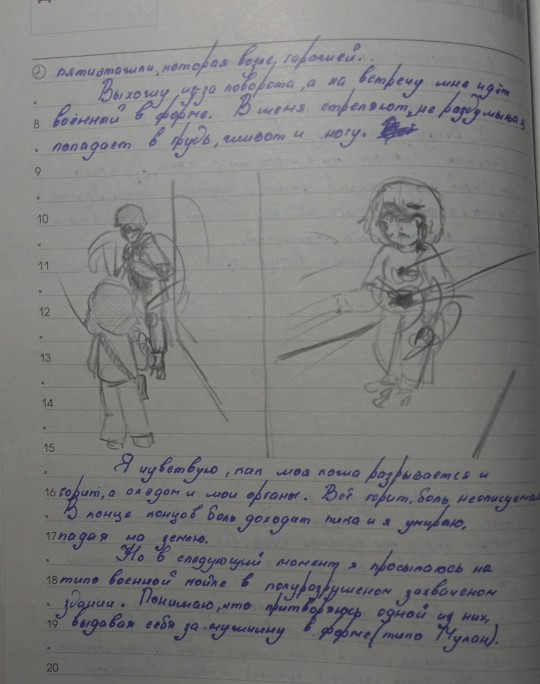 пятиэтажки, которая возле гаражей..
Выхожу из-за поворота, а на встречу мне идёт
8 военный в форме. В меня стреляют, не раздумывая,
попадает в грудь, живот и ногу.
9
10
11
12
13
14
15
Я чувствую, как моя кожа разрывается и
16 горит, а следом и мои органы. Всё горит, боль неописуемая
В конце концов боль доходит пика и я умираю,
17 падая на землю.
Но в следующий момент я просыпаюсь на
18 типо военной койке в полуразрушеном захваченом
здании. Понимаю, что притворяюсь одной из них,
19 выдавая себя за мужчину в форме (типо Мулан).
20